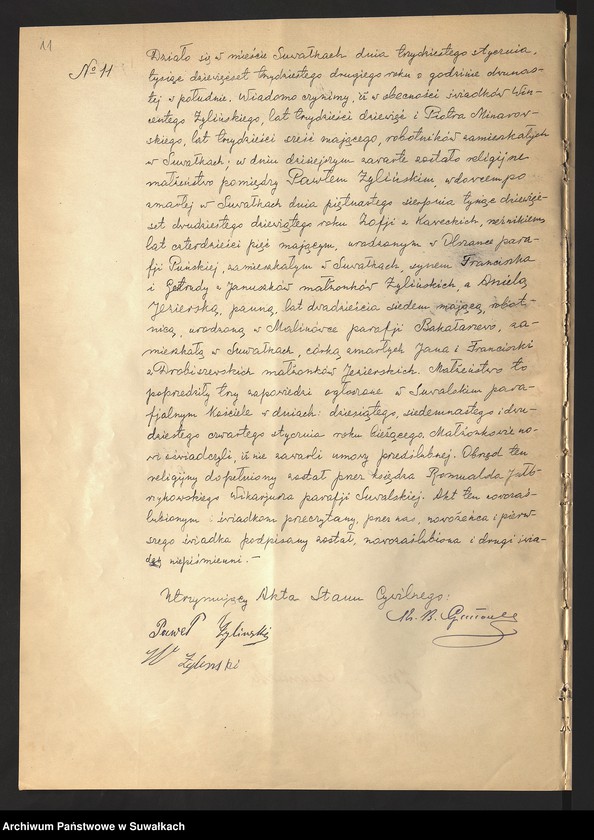 11
№ 11
Działo się w mieście Suwałkach dnia trzydziestego stycznia,
tysiąc dziewięćset trzydziestego drugiego roku o godzinie dwunas-
tej w południe. Wiadomo czynimy, iż w obecności świadków Win-
centego Żylińskiego, lat trzydzieści dziewięć i Piotra Minarow-
skiego, lat trzydzieści sześć mającego, robotników zamieszkałych
w Suwałkach; w dniu dzisiejszym zawarte zostało religijne
małżeństwo pomiędzy Pawłem Żylińskim, wdowcem po
zmarłej w Suwałkach dnia piętnastego sierpnia tysiąc dziewięć-
set dwudziestego dziewiątego roku Zofji z Kaveckich, rzeźnikiem
lat czterdzieści pięć mającym, urodzonym w Olszance para-
fji Puńskiej, zamieszkałym w Suwałkach, synem Franciszka
i Gertrudy z Januszków małżonków Żylińskich, a Anielą
Jezierską, panną, lat dwadzieścia siedem mającą, robot-
nicą, urodzoną w Malinówce parafji Bakałarzewo, za-
mieszkałą w Suwałkach, córką zmarłych Jana i Franciszki
z Drobiszewskich małżonków Jezierskich. Małżeństwo to
poprzedziły trzy zapowiedzi ogłoszone w Suwalskim para-
fjalnym Kościele w dniach: dziesiątego, siedemnastego i dwu-
dziestego czwartego stycznia roku bieżącego. Małżonkowie no-
wi oświadczyli, iż nie zawarli umowy przedślubnej. Obrzęd ten
religijny dopełniony został przez księdza Romualda Jałb-
rzykowskiego Wikarjusza parafji Suwalskiej. Akt ten nowozaś-
lubionym i świadkom przeczytany, przez nas, nowożeńca i pierw-
szego świadka podpisany został, nowozaślubiona i drugi świa-
dek niepiśmienni. —
Utrzymujący Akta Stanu Cywilnego:
Paweł Żyliński
W Żyliński
Archiwum Państwowe w Suwałkach